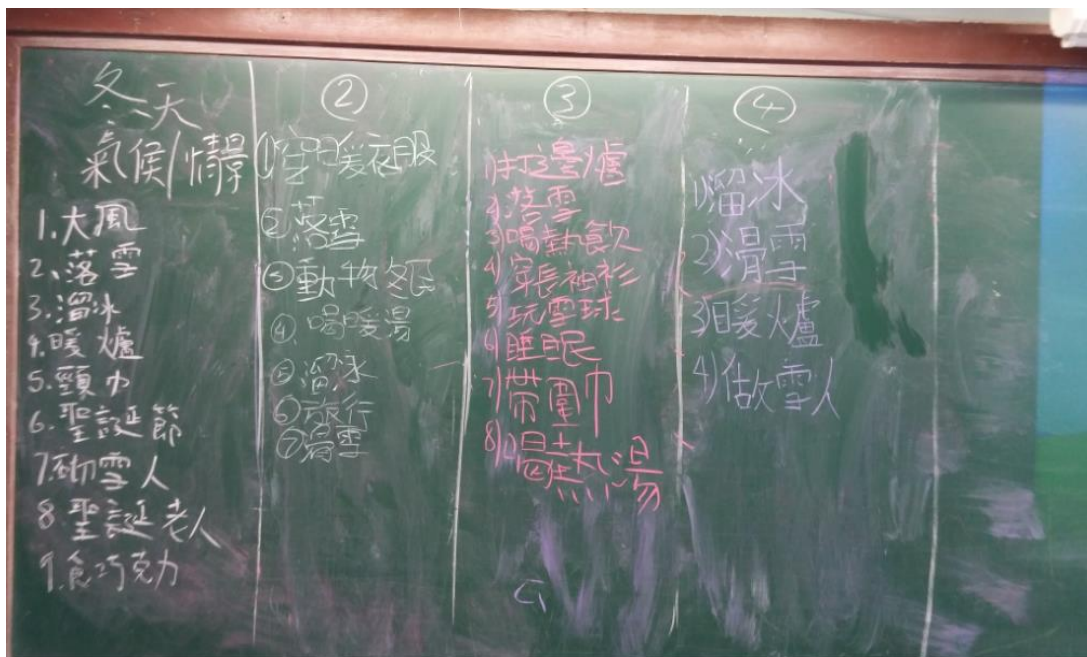 冬天
氣候/情景
1.大風
2.落雪
3.溜冰
4.暖爐
5.頸巾
6.聖誕節
7.砌雪人
8.聖誕老人
9.食巧克力
②
①穿暖衣服
②落雪
③動物冬眠
④喝暖湯
⑤溜冰
⑥旅行
⑦滑雪
③
1)打邊爐
2)落雪
3)喝熱飲
4)穿長袖衫
5)玩雪球
6)睡眠
7)帶圍巾
8)喝熱湯
④
1)溜冰
2)滑雪
3)暖爐
4)做雪人